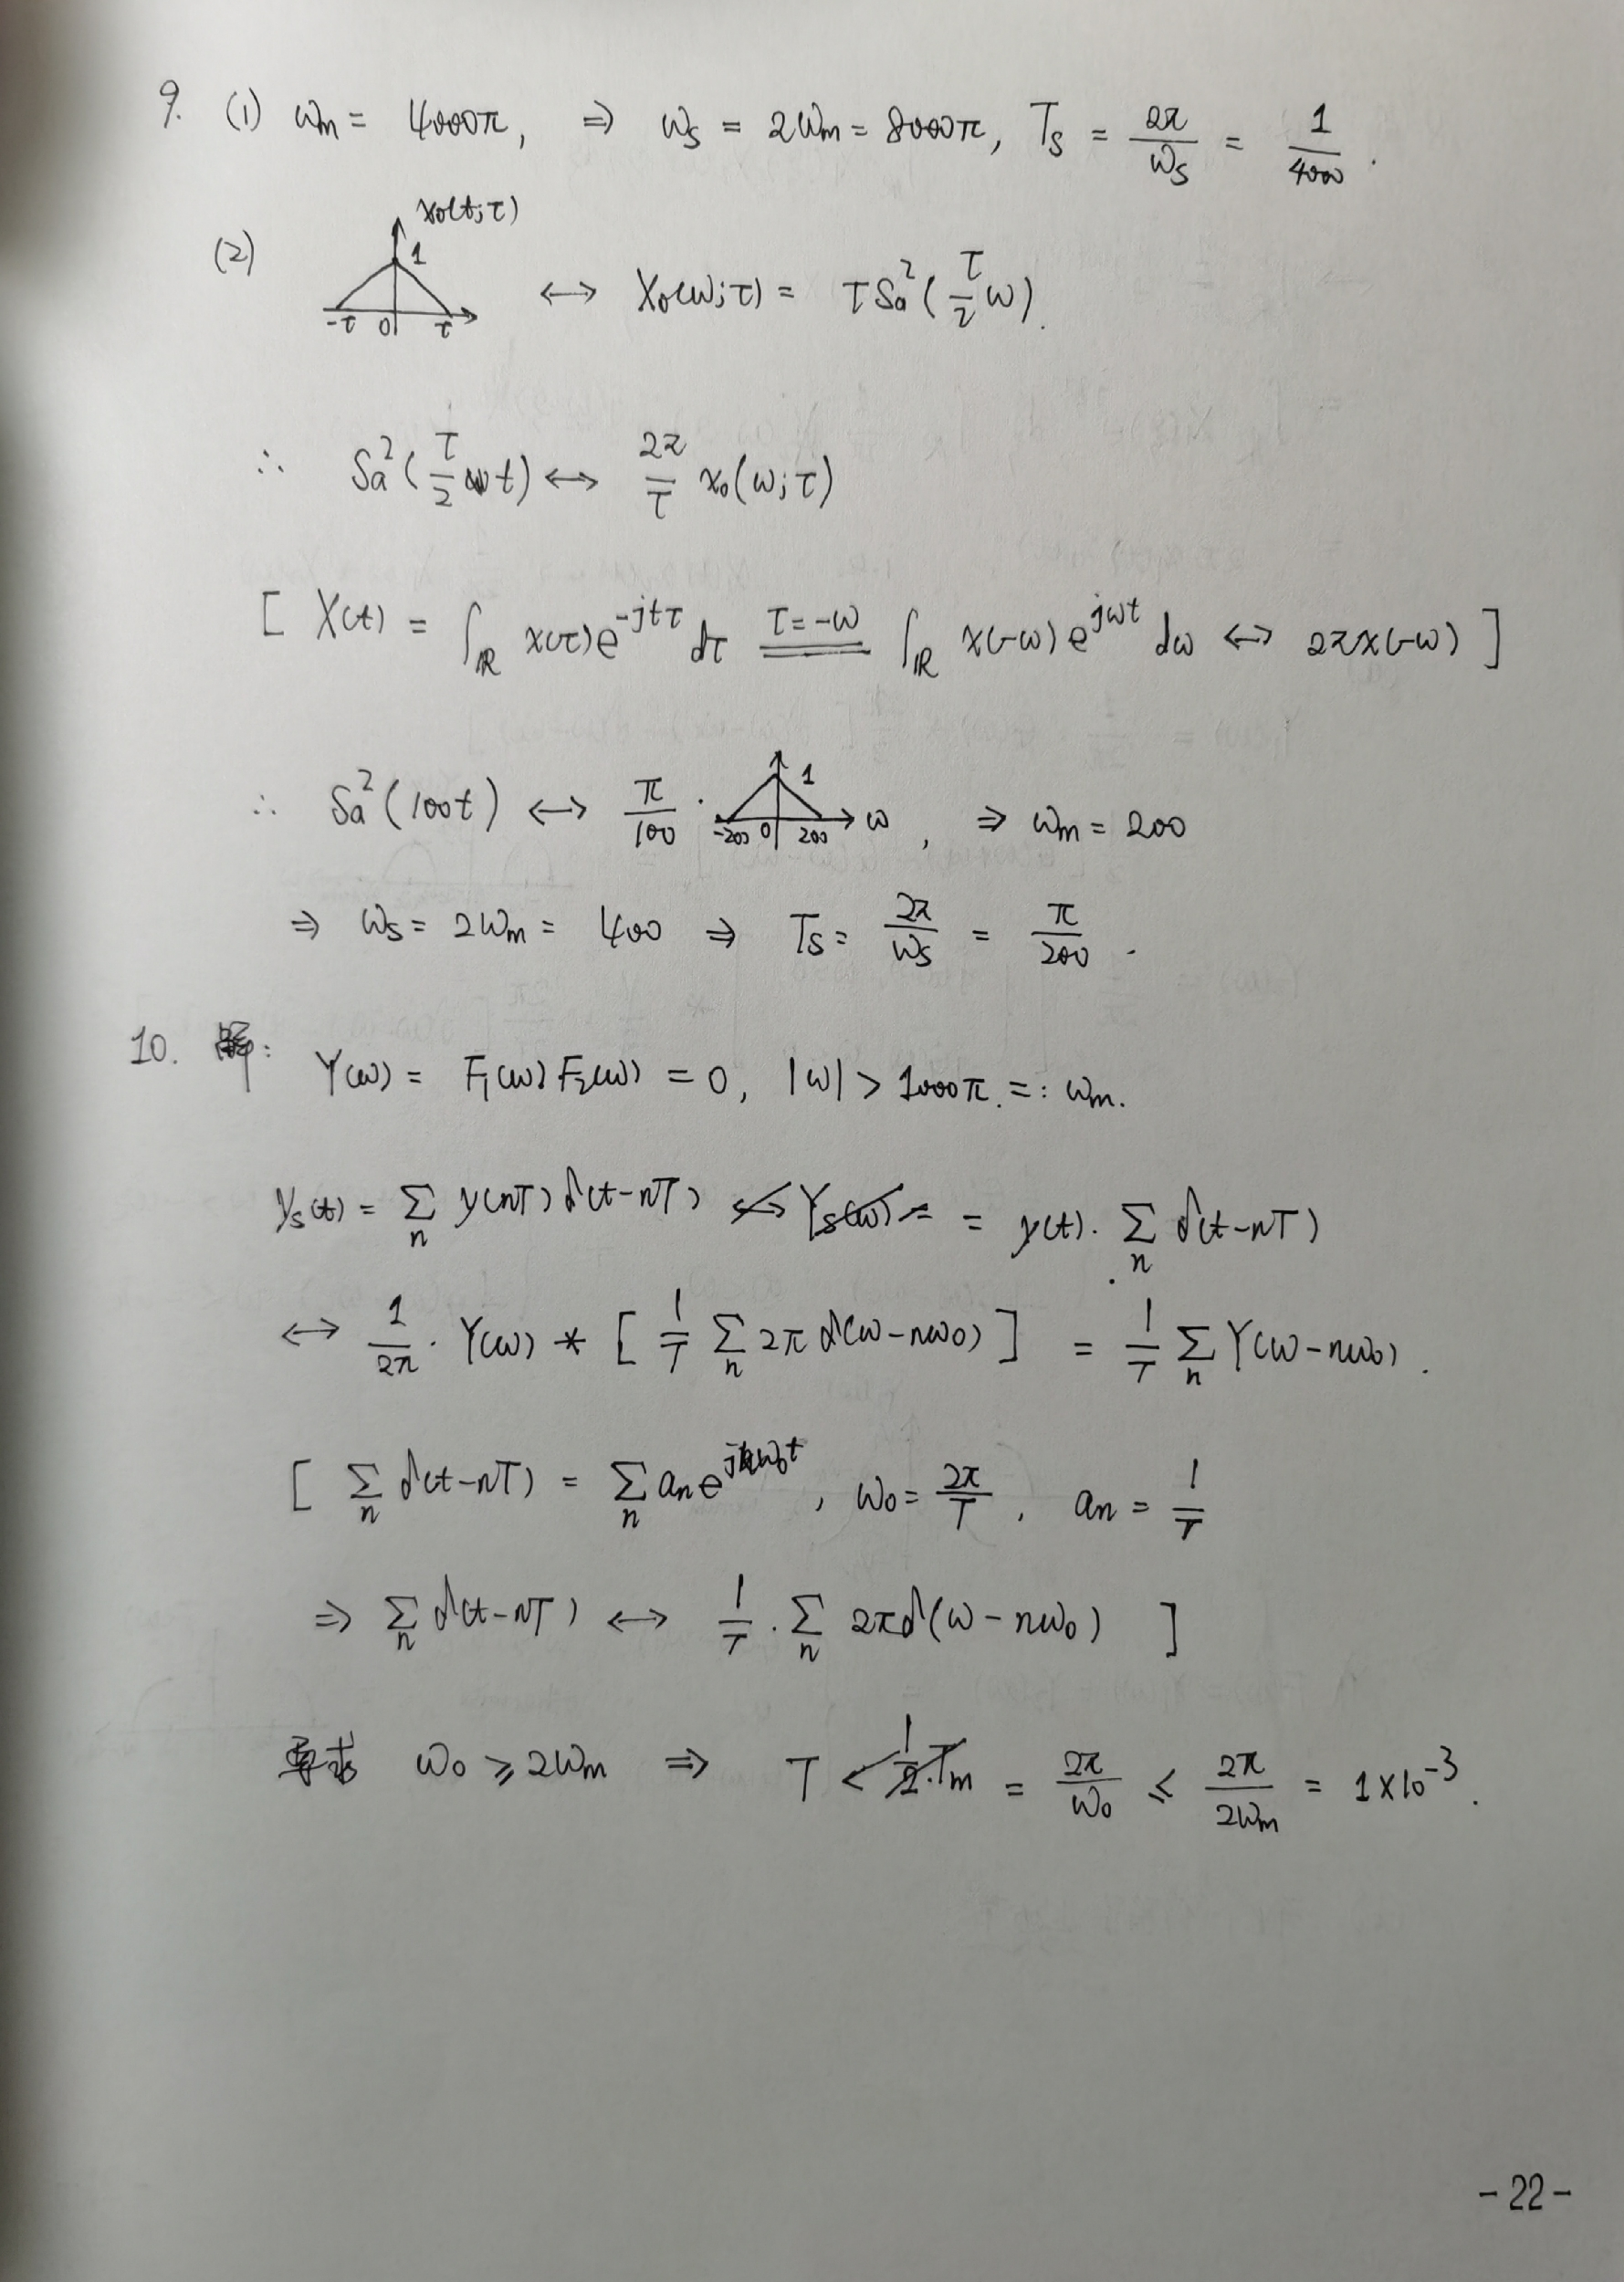 9. (1) ωm = 4000π, ⇒ ωs = 2ωm = 8000π, Ts = 2π/ωs = 1/4000.
x0(t;τ)
(2) 1 -τ 0 τ ↔ X0(ω;τ) = τSa²(τ/2 ω).
∴ Sa²(τ/2 t) ↔ 2π/τ x0(ω;τ)
[ X(t) = ∫ℝ x(τ)e^{-jtτ} dτ =(τ=-ω)= ∫ℝ x(-ω) e^{jωt} dω ↔ 2πx(-ω) ]
∴ Sa²(100t) ↔ π/100 · 1 -200 0 200 ω, ⇒ ωm = 200
⇒ ωs = 2ωm = 400 ⇒ Ts = 2π/ωs = π/200.
10. 解: Y(ω) = F1(ω)F2(ω) = 0, |ω| > 1000π. =: ωm.
ys(t) = Σn y(nT)δ(t-nT) ↔ Ys(ω) = = y(t)· Σn δ(t-nT)
↔ 1/2π · Y(ω) * [ 1/T Σn 2πδ(ω-nω0) ] = 1/T Σn Y(ω-nω0).
[ Σn δ(t-nT) = Σn an e^{jnω0t}, ω0 = 2π/T, an = 1/T
⇒ Σn δ(t-nT) ↔ 1/T · Σn 2πδ(ω-nω0) ]
ω0 ⩾ 2ωm ⇒ T < 1/2·Tm = 2π/ω0 ⩽ 2π/2ωm = 1×10⁻³.
-22-